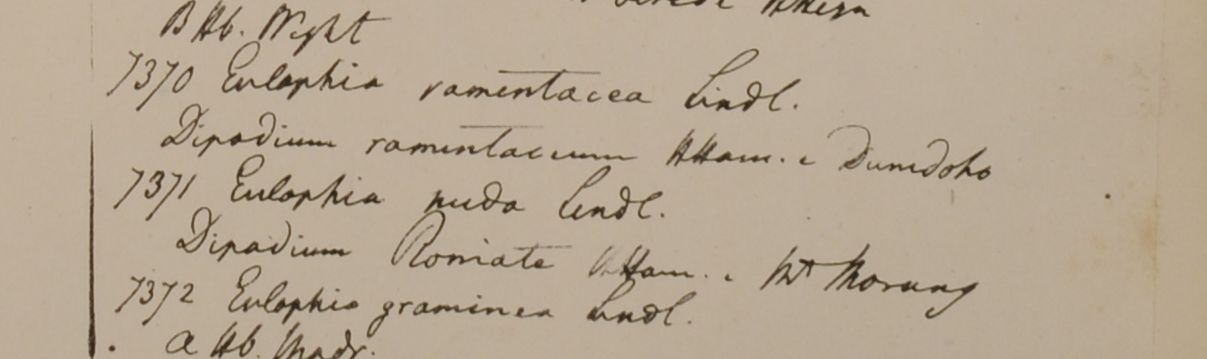 HHeyn
B Hb. Wight
7370 Eulophia ramentacea Lindl.
Dipodium ramentaceum HHam. e
7371 Eulophia nuda Lindl.
Dipodium HHam. e Mt Morung
7372 Eulophia graminea Lindl.
a Hb. Madr.